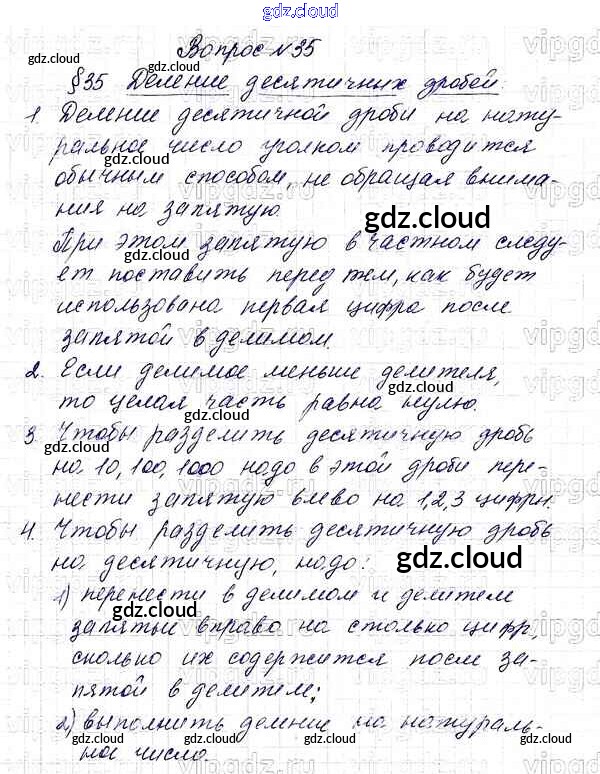 gdz.cloud
Вопрос №35
§35 Деление десятичных дробей
1. Деление десятичной дроби на нату-
ральное число уголком проводится
обычным способом, не обращая внима-
ния на запятую.
При этом запятую в частном следу-
ет поставить перед тем, как будет
использована первая цифра после
запятой в делимом.
2. Если делимое меньше делителя,
то целая часть равна нулю.
3. Чтобы разделить десятичную дробь
на 10, 100, 1000 надо в этой дроби пере-
нести запятую влево на 1,2,3 цифры.
4. Чтобы разделить десятичную дробь
на десятичную, надо:
1) перенести в делимом и делителе
запятые вправо на столько цифр,
сколько их содержится после за-
пятой в делителе;
2) выполнить деление на натураль-
ное число.